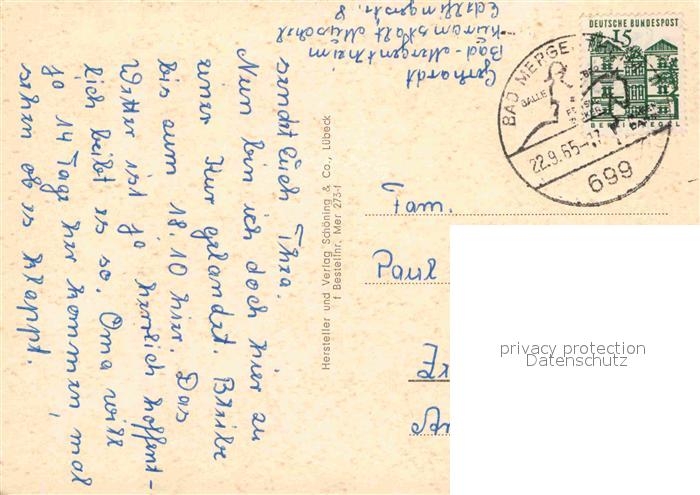 Gerhardt
Bad-Mergentheim
Kuranstalt
Edelfingerstr. 8
sendet Euch Thea.
Nun bin ich doch hier zu
einer Kur gelandet. Bleibe
bis zum 18.10 hier. Das
Wetter ist ja herrlich hoffent-
lich bleibt es so. Oma will
ja 14 Tage her kommen, mal
sehen ob es klappt.
Hersteller und Verlag Schöning & Co., Lübeck
f Bestellnr. Mer 273-f
DEUTSCHE BUNDESPOST
15
BERLIN TEGEL
BAD MERGE
22.9.65-17
699
Fam.
Paul
privacy protection
Datenschutz